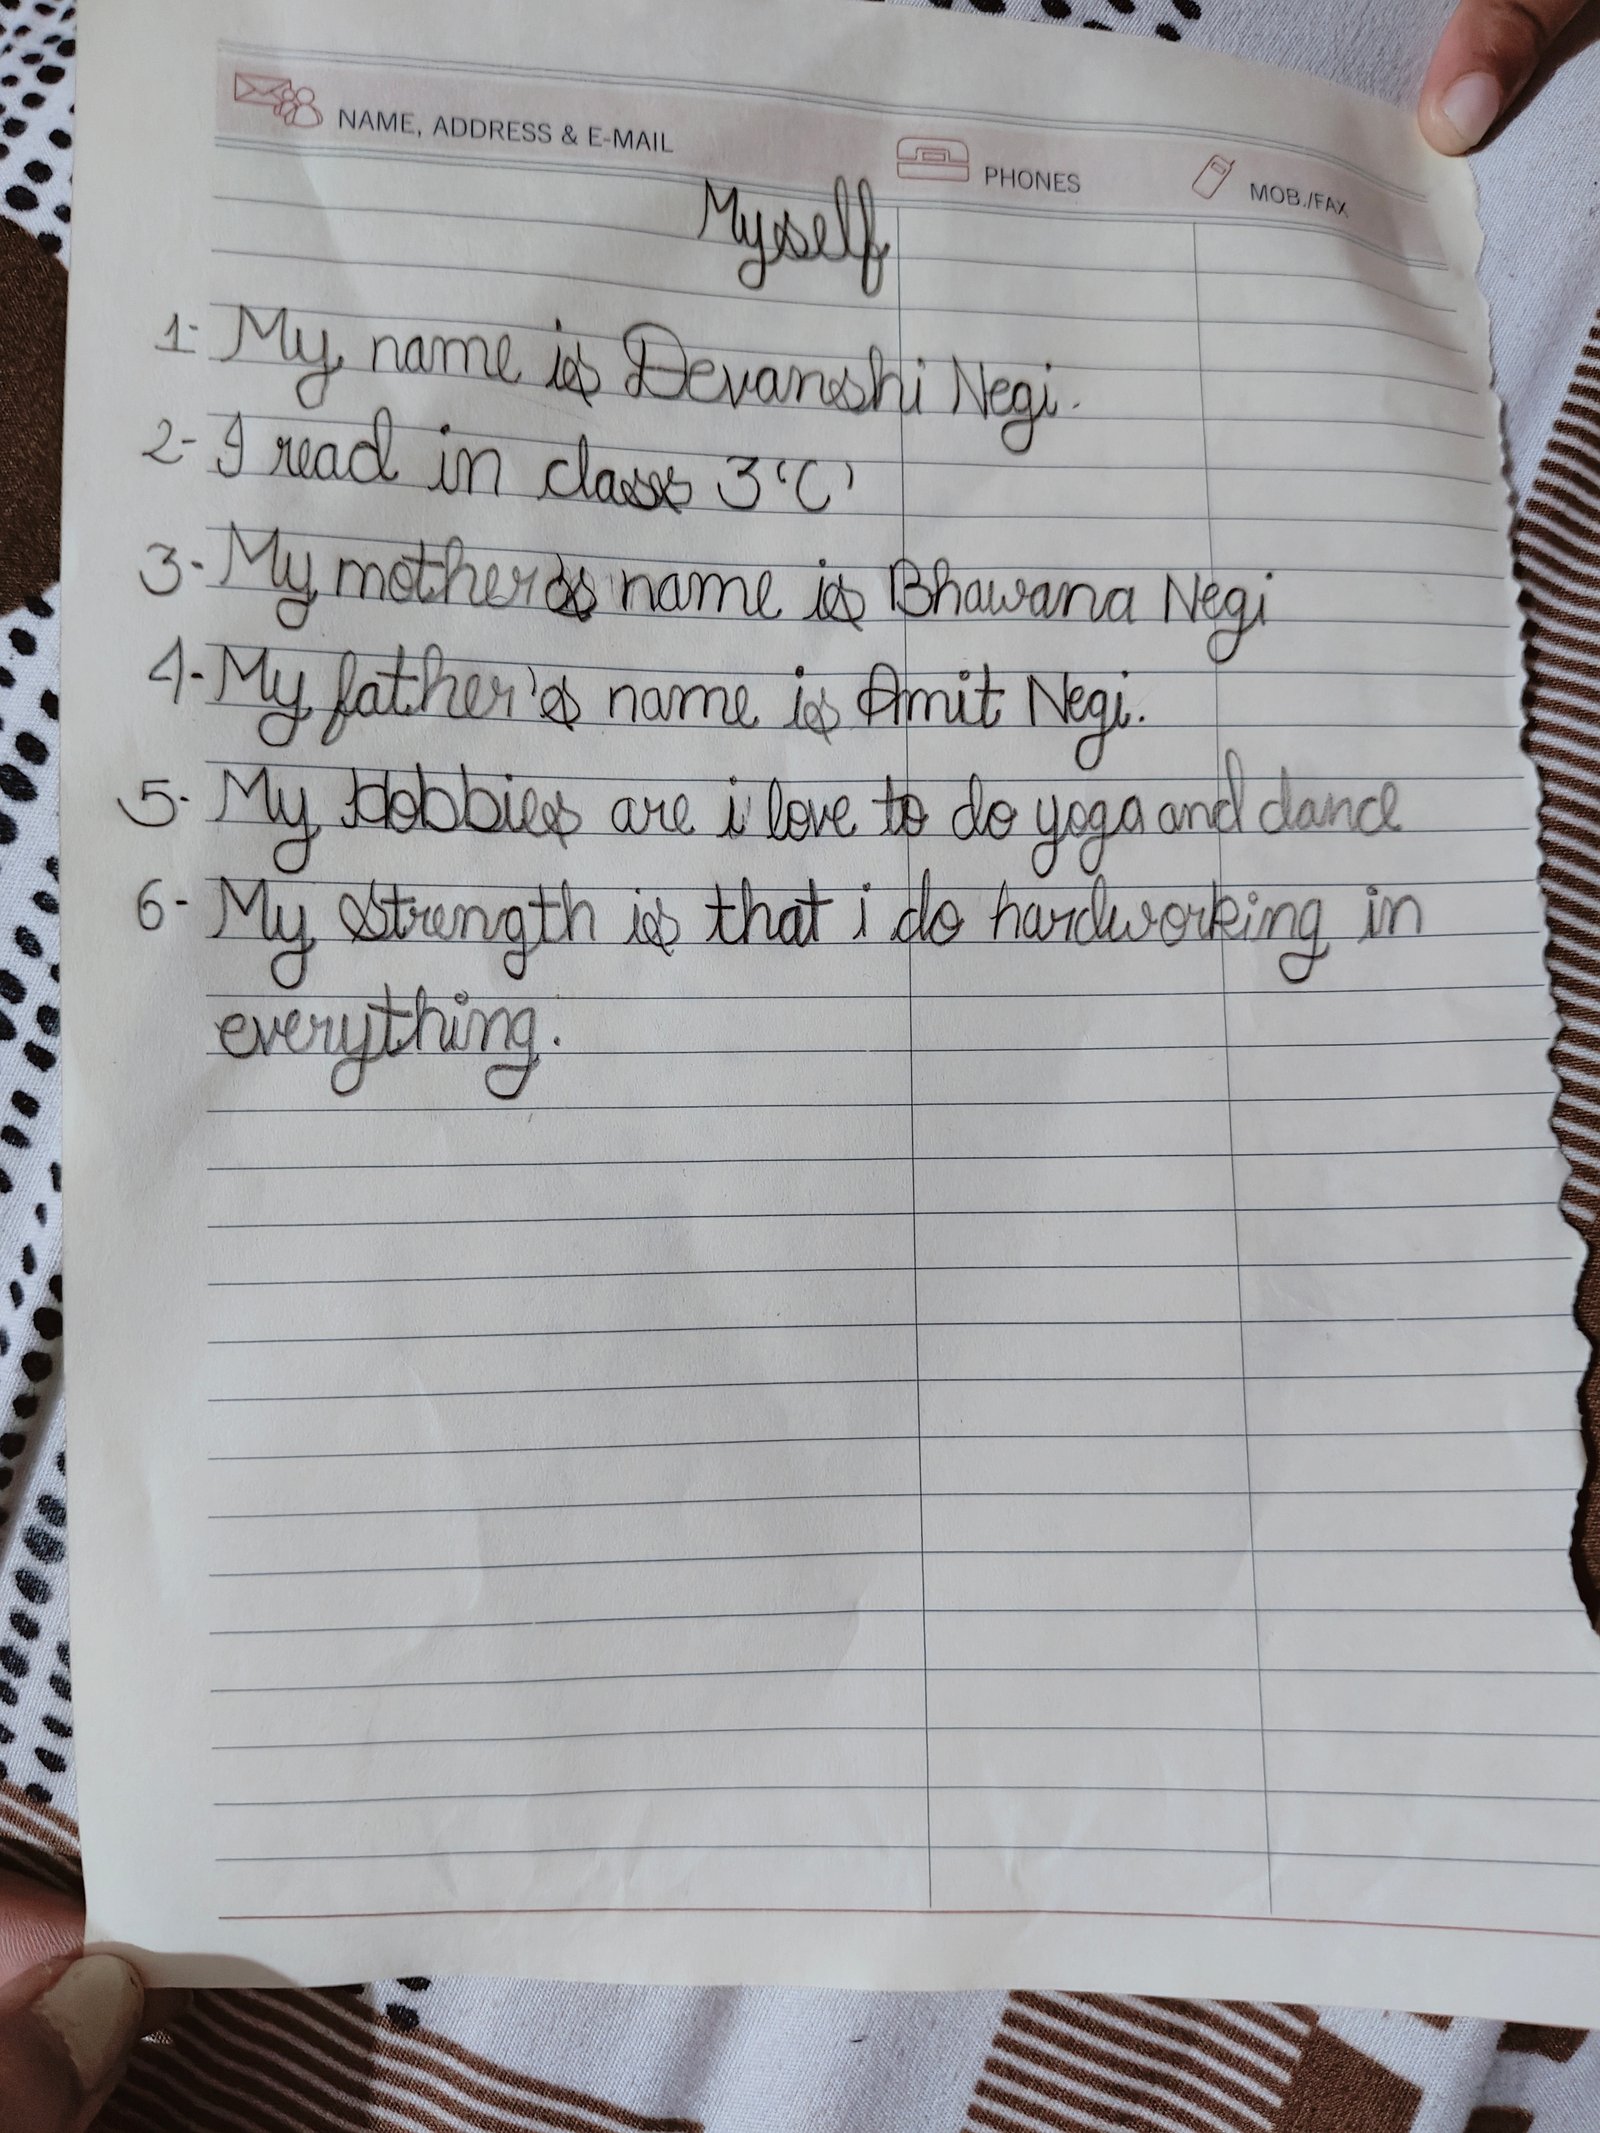 NAME, ADDRESS & E-MAIL PHONES MOB./FAX
Myself
1- My name is Devanshi Negi.
2- I read in class 3 'C'
3- My mother's name is Bhawana Negi
4- My father's name is Amit Negi.
5- My Hobbies are i love to do yoga and dance
6- My Strength is that i do hardworking in
everything.